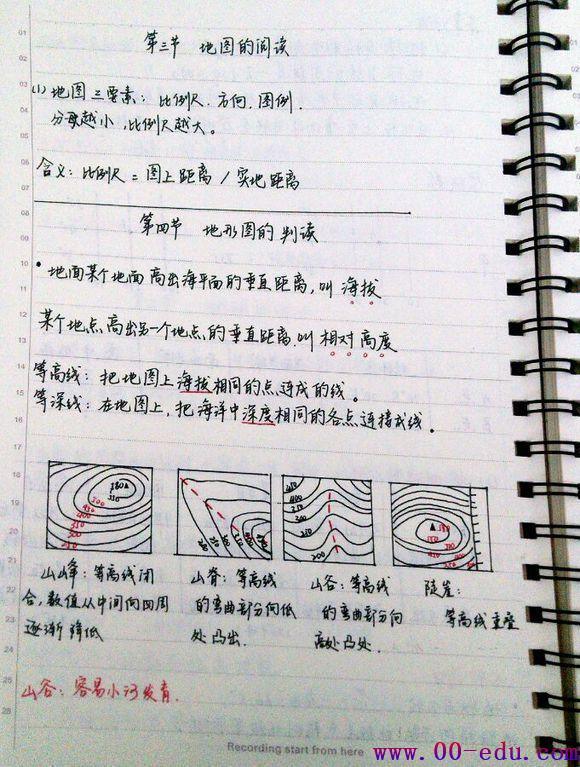 第三节 地图的阅读
(1) 地图三要素：比例尺.方向.图例.
分母越小,比例尺越大。
含义：比例尺=图上距离/实地距离
第四节 地形图的判读
• 地面某个地面高出海平面的垂直距离,叫海拔
某个地点高出另一个地点的垂直距离叫相对高度
等高线：把地图上海拔相同的点连成的线。
等深线：在地图上,把海洋中深度相同的各点连接成线。
山峰：等高线闭
合,数值从中间向四周
逐渐降低
山脊：等高线
的弯曲部分向低
处凸出.
山谷：等高线
的弯曲部分向
高处凸处.
陡崖：
等高线重叠
山谷：容易小河发育.
Recording start from here
www.00-edu.com